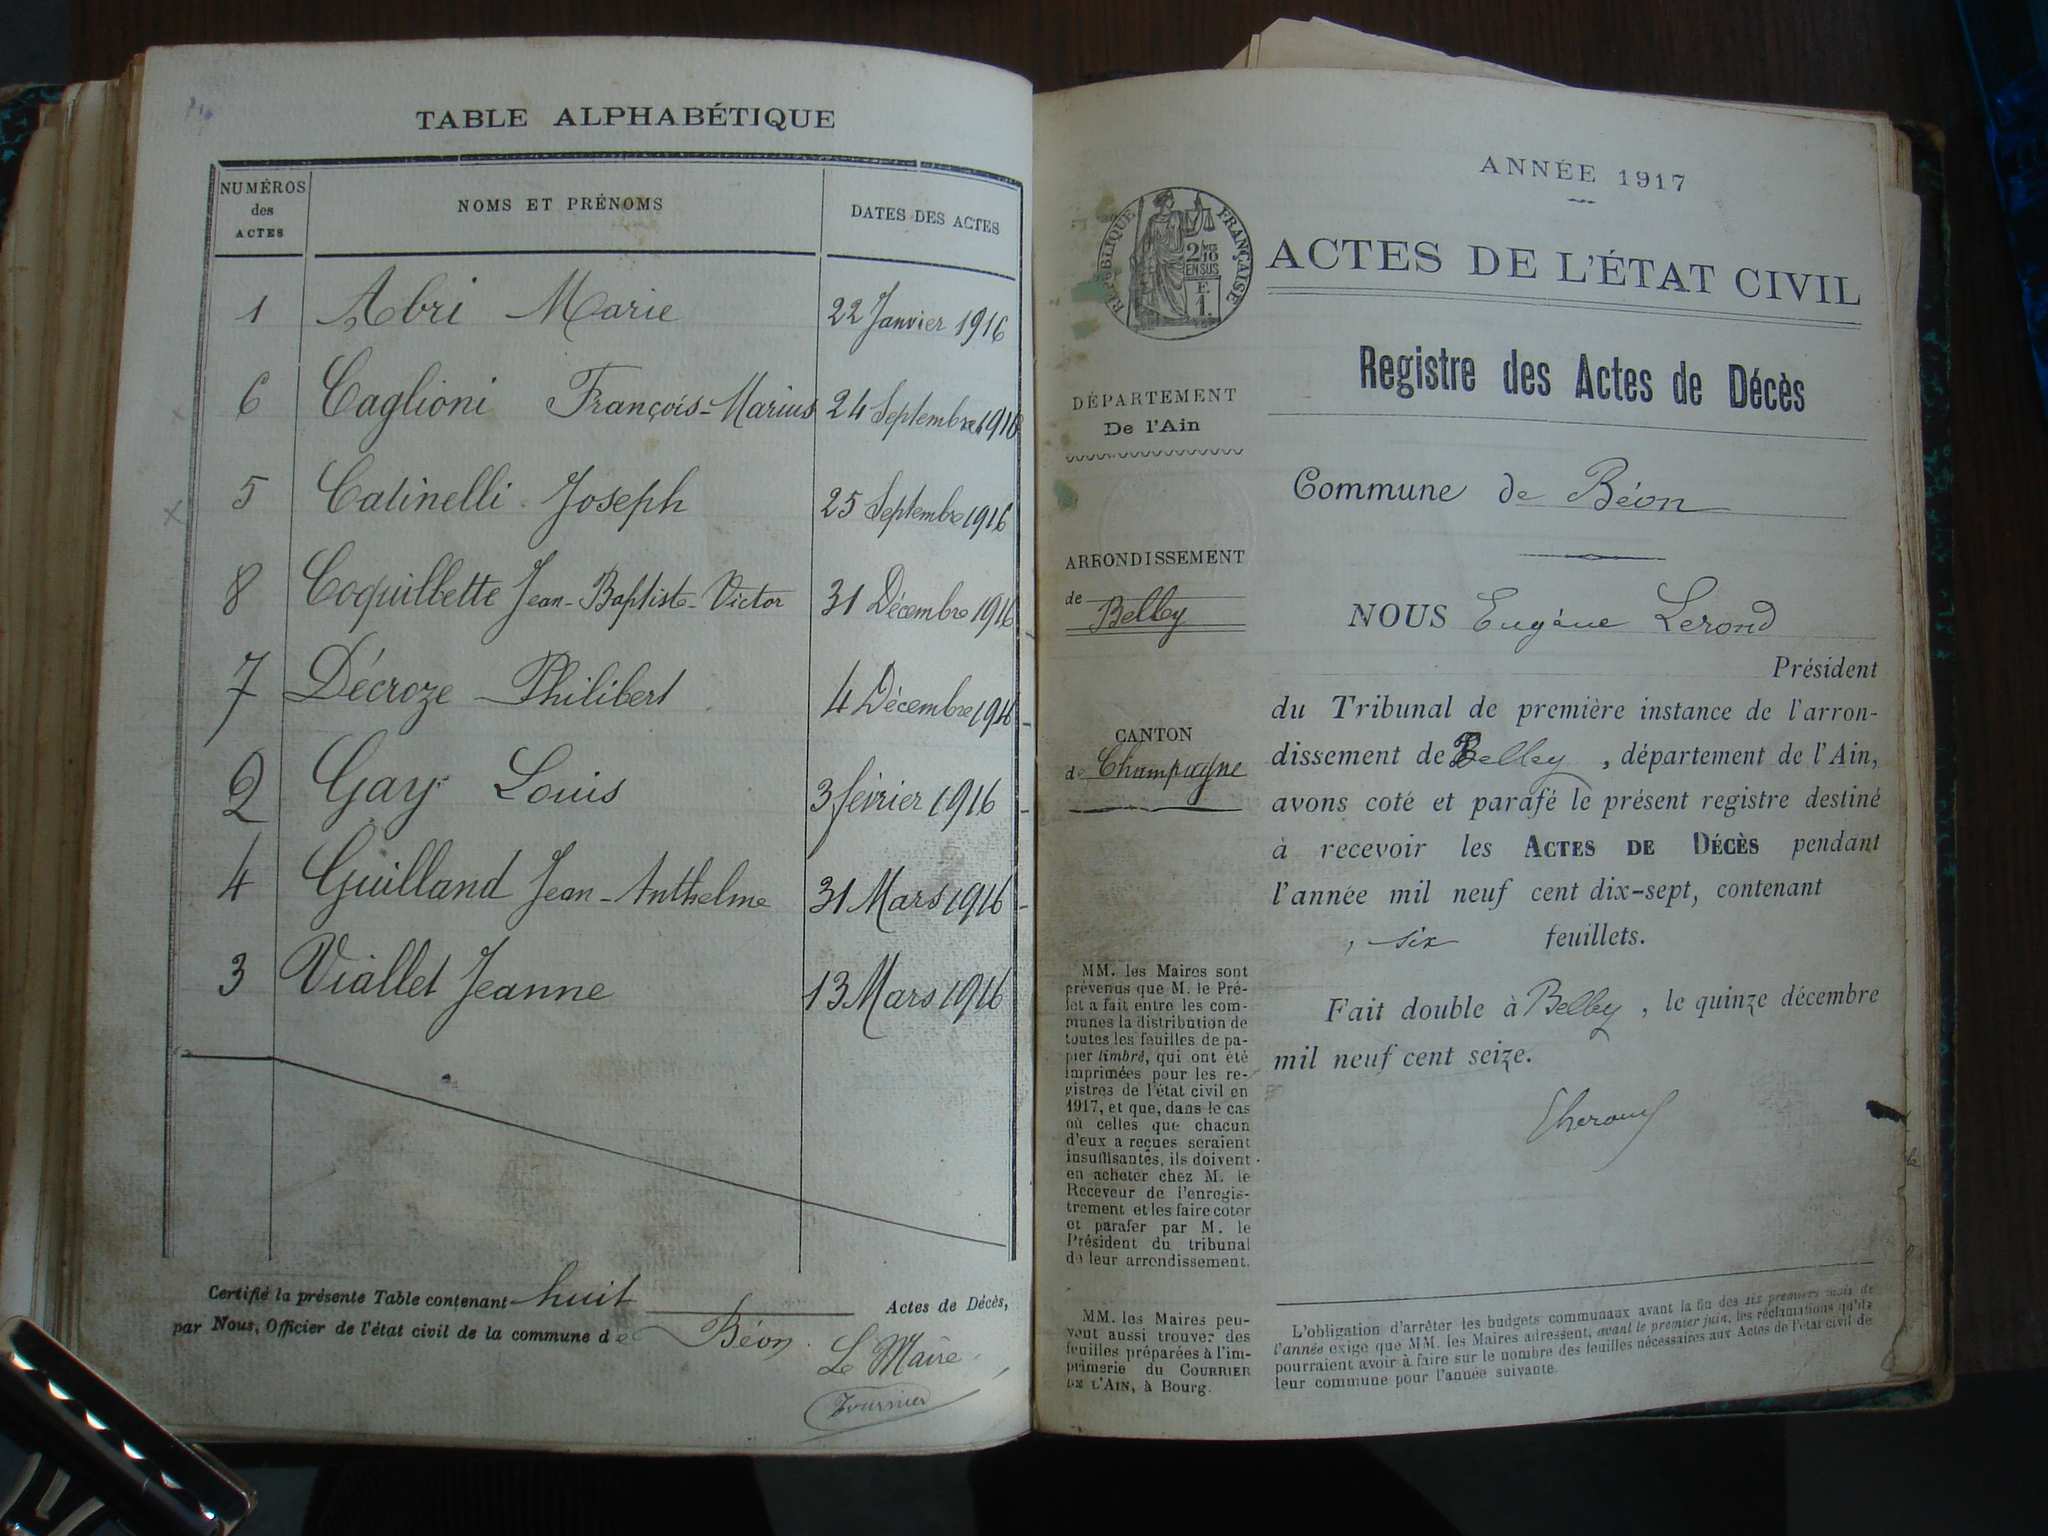 TABLE ALPHABÉTIQUE
NUMÉROS des ACTES NOMS ET PRÉNOMS DATES DES ACTES
1 Abri Marie 22 Janvier 1916
6 Caglioni François-Marius 24 Septembre 1916
5 Catinelli Joseph 25 Septembre 1916
8 Coquillette Jean-Baptiste-Victor 31 Décembre 1916
7 Décroze Philibert 4 Décembre 1916
2 Gay Louis 3 février 1916
4 Guilland Jean-Anthelme 31 Mars 1916
3 Viallet Jeanne 13 Mars 1916
Certifié la présente Table contenant huit Actes de Décès,
par Nous, Officier de l'état civil de la commune de Béon
Le Maire
Fournier
RÉPUBLIQUE FRANÇAISE
2/10
EN SUS
F.
1.
DÉPARTEMENT
De l'Ain
ARRONDISSEMENT
de Belley
CANTON
de Champagne
MM. les Maires sont
prévenus que M. le Pré-
fet a fait entre les com-
munes la distribution de
toutes les feuilles de pa-
pier timbré, qui ont été
imprimées pour les re-
gistres de l'état civil en
1917, et que, dans le cas
où celles que chacun
d'eux a reçues seraient
insuffisantes, ils doivent
en acheter chez M. le
Receveur de l'enregis-
trement et les faire coter
et parafer par M. le
Président du tribunal
de leur arrondissement.
MM. les Maires peu-
vent aussi trouver des
feuilles préparées à l'im-
primerie du COURRIER
DE L'AIN, à Bourg.
ANNÉE 1917
ACTES DE L'ÉTAT CIVIL
Registre des Actes de Décès
Commune de Béon
NOUS Eugène Lerond
Président
du Tribunal de première instance de l'arron-
dissement de Belley, département de l'Ain,
avons coté et parafé le présent registre destiné
à recevoir les ACTES DE DÉCÈS pendant
l'année mil neuf cent dix-sept, contenant
six feuillets.
Fait double à Belley, le quinze décembre
mil neuf cent seize.
L'obligation d'arrêter les budgets communaux avant la fin des six premiers mois de
l'année exige que MM. les Maires adressent, avant le premier juin, les réclamations qu'ils
pourraient avoir à faire sur le nombre des feuilles nécessaires aux Actes de l'état civil de
leur commune pour l'année suivante.